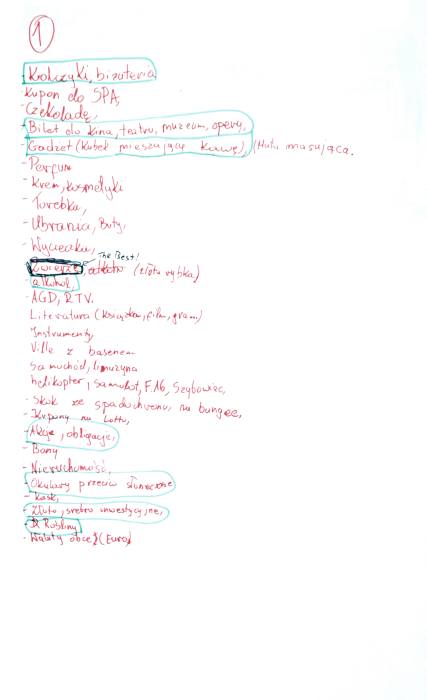 1
- Kolczyki, biżuteria
- Kupon do SPA,
- Czekoladę,
- Bilet do kina, teatru, muzeum, opery,
- Gadżet (Kubek mieszający kawę), (Mata masująca.
- Perfum
- Krem, kosmetyki
- Torebka,
- Ubrania, Buty,
- Wycieczka,
The Best!
- Zwierzę, (złota rybka)
- alkohol,
- AGD, RTV.
Literatura (książka, film, gra...)
Instrumenty,
Ville z basenem
Samochód, limuzyna
helikopter, samolot, F16, Szybowiec,
- Skok ze spadochronu, na bungee,
- Kupony na Lotto,
- Akcje, obligacje,
- Bony
- Nieruchomość,
- Okulary przeciw słoneczne
- Kask,
- Złoto, srebro inwestycyjne,
- Rośliny
- Waluty obce (Euro)